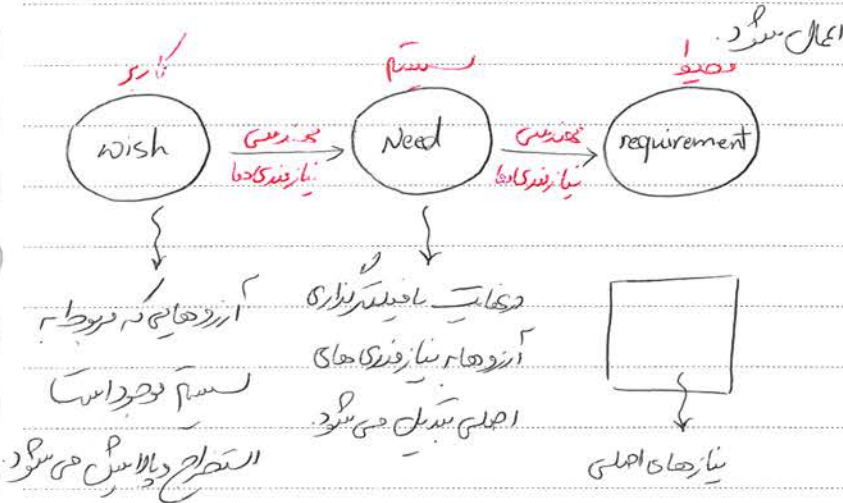 اعمال می‌شود.
کاربر
سیستم
محیط
wish
مهندسی
نیازمندی‌ها
Need
مهندسی
نیازمندی‌ها
requirement
آرزوهایی که مربوط به
سیستم موجود است
استخراج و پالایش می‌شود.
درنهایت با فیلترگذاری
آرزوها به نیازمندی های
اصلی تبدیل می‌شود.
نیازهای اصلی